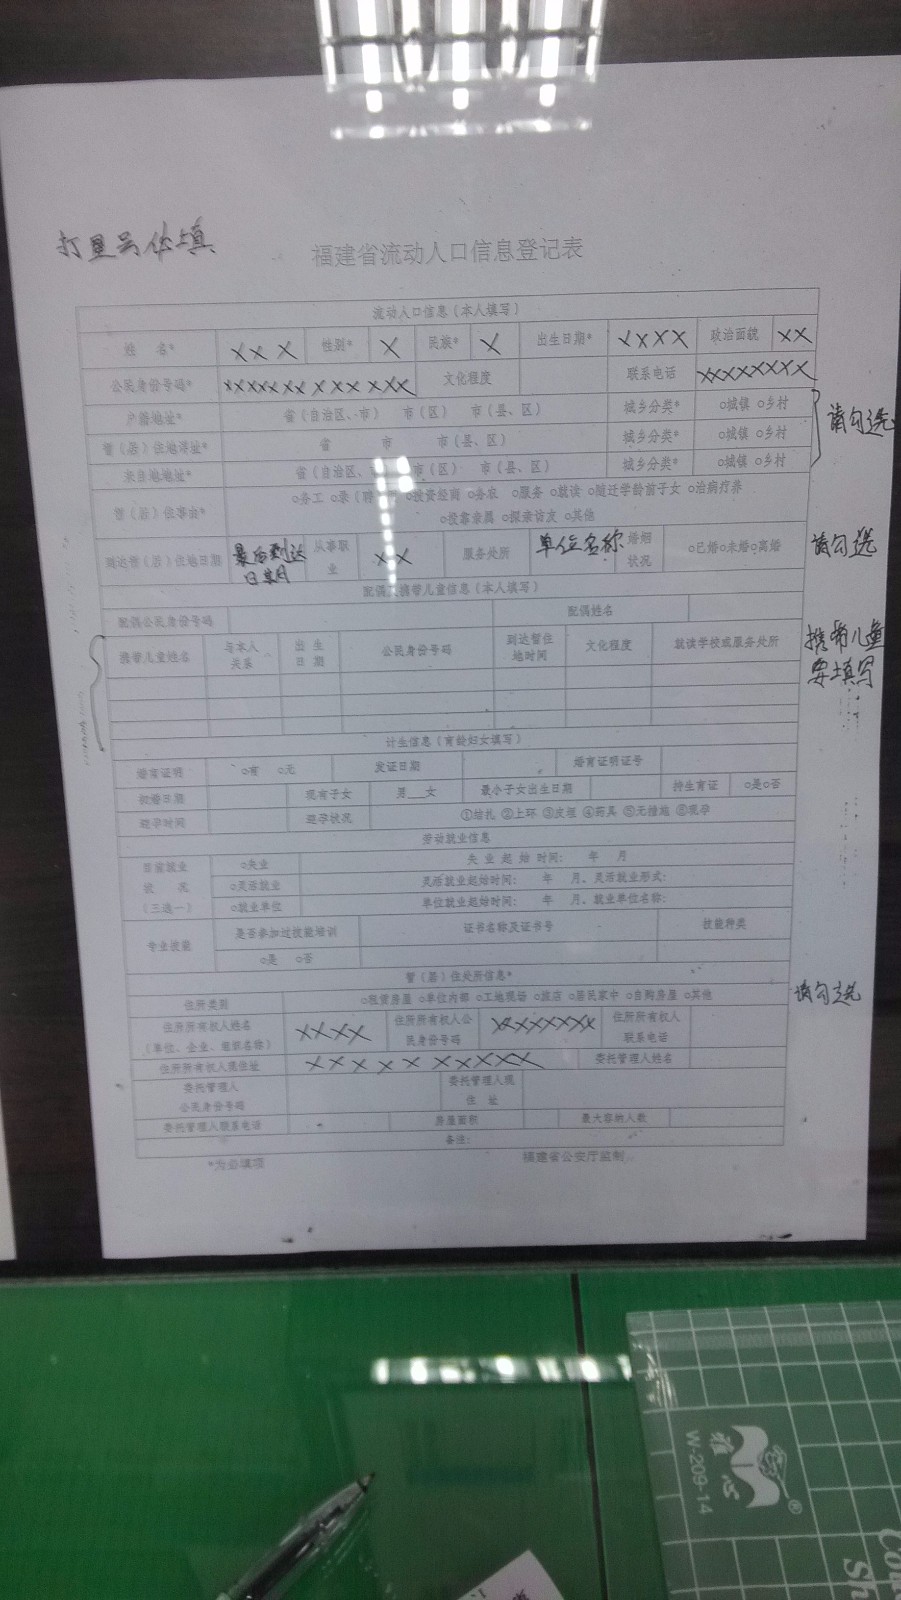 打星号必填
福建省流动人口信息登记表
流动人口信息（本人填写）
姓 名* XXX 性别* X 民族* X 出生日期* XXXX 政治面貌 XX
公民身份号码* XXXXXXXXXXXXX 文化程度 联系电话 XXXXXXXX
户籍地址* 省（自治区、市） 市（区） 市（县、区） 城乡分类* ○城镇 ○乡村 请勾选
暂（居）住地详址* 省 市 市（县、区） 城乡分类* ○城镇 ○乡村
来自地地址* 省（自治区、市） 市（区） 市（县、区） 城乡分类* ○城镇 ○乡村
暂（居）住事由* ○务工 ○录（聘 ○投资经商 ○务农 ○服务 ○就读 ○随迁学龄前子女 ○治病疗养
○投靠亲属 ○探亲访友 ○其他
到达暂（居）住地日期 最后到达日期 从事职业 XX 服务处所 单位名称 婚姻状况 ○已婚○未婚○离婚 请勾选
配偶及携带儿童信息（本人填写）
配偶公民身份号码 配偶姓名
携带儿童姓名 与本人关系 出生日期 公民身份号码 到达暂住地时间 文化程度 就读学校或服务处所 携带儿童要填写
计生信息（育龄妇女填写）
婚育证明 ○有 ○无 发证日期 婚育证明证号
初婚日期 现有子女 男__女 最小子女出生日期 持生育证 ○是○否
避孕时间 避孕状况 ①结扎 ②上环 ③皮埋 ④药具 ⑤无措施 ⑥现孕
劳动就业信息
目前就业状况（三选一） ○失业 失业起始时间： 年 月
○灵活就业 灵活就业起始时间： 年 月、灵活就业形式：
○就业单位 单位就业起始时间： 年 月、就业单位名称：
专业技能 是否参加过技能培训 证书名称及证书号 技能种类
○是 ○否
暂（居）住处所信息*
住所类别 ○租赁房屋 ○单位内部 ○工地现场 ○旅店 ○居民家中 ○自购房屋 ○其他 请勾选
住所所有权人姓名（单位、企业、组织名称） XXXX 住所所有权人公民身份号码 XXXXXXX 住所所有权人联系电话
住所所有权人现住址 XXXXXXXXXXX 委托管理人姓名
委托管理人公民身份号码 委托管理人现住址
委托管理人联系电话 房屋面积 最大容纳人数
备注：
*为必填项 福建省公安厅监制
雅心
®
W-209-14